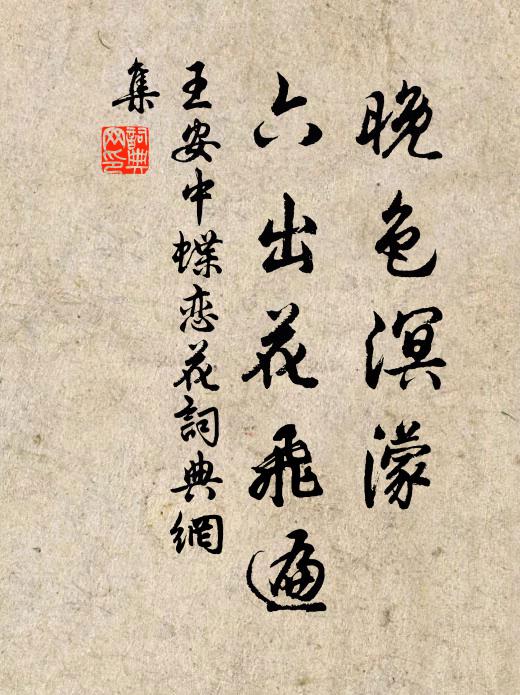 晚色溟濛
六出花飛遍
王安中蝶恋花詞典網
集
詞典網印